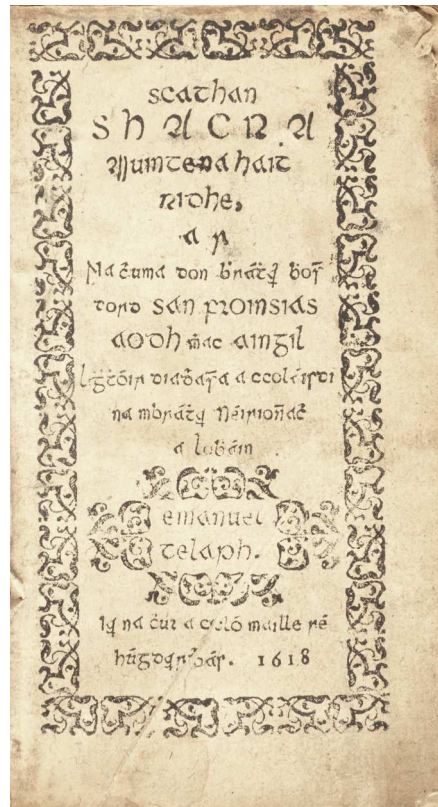 scathan
SHACRA
Muinteradhait
ridhe,
ar
Na ċuma don ḃráṫɥ ḃoċ
dord san froinsias
AODH ṁac aingil
léġtóir diaḋaċa a ccoláisdi
na mbráṫɥ Néirionaċ
a Lobáin
emanuel
celaph.
Iɥ na ċur a ccló maille ré
1618